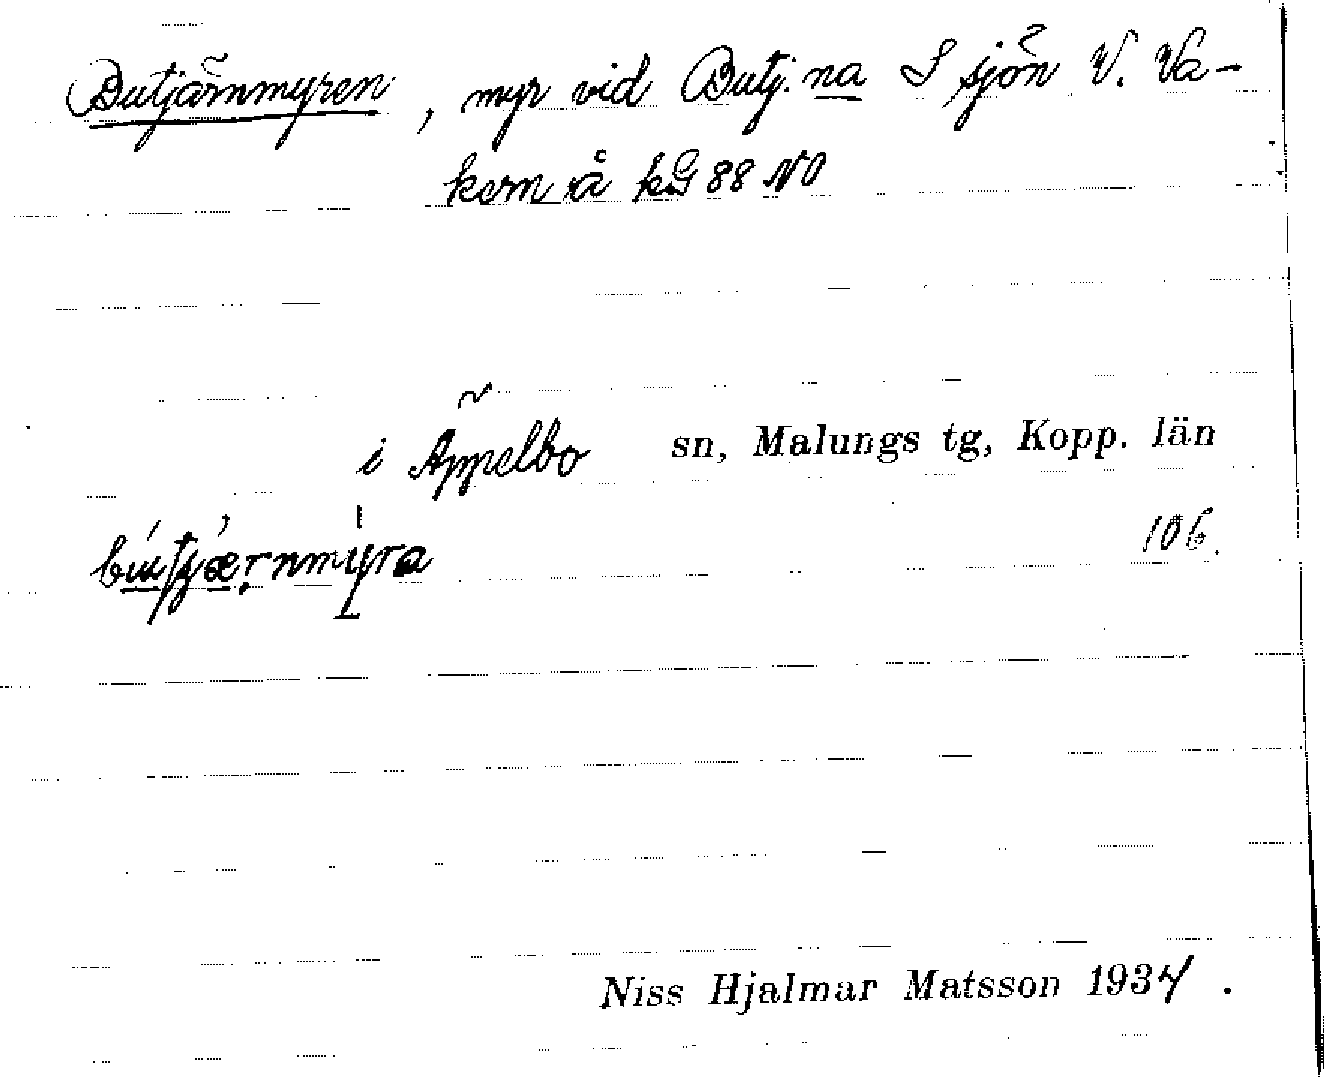 Butjärnmyren, myr vid Butj.na S sjön V. Va-
kern å kG 88 NO
i Äppelbo sn, Malungs tg, Kopp. län
106.
Niss Hjalmar Matsson 1934.